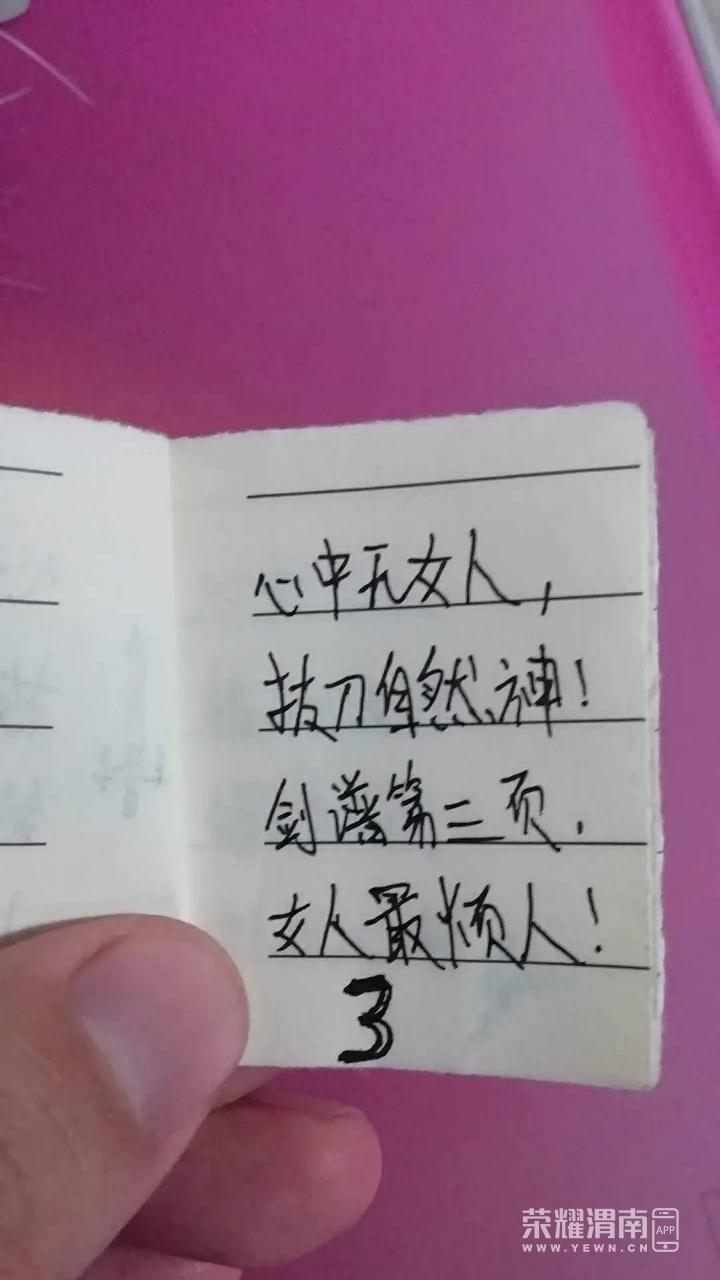 心中无女人，
拔刀自然神！
剑谱第三页.
女人最烦人！
3
荣耀渭南 APP
WWW.YEWN.CN